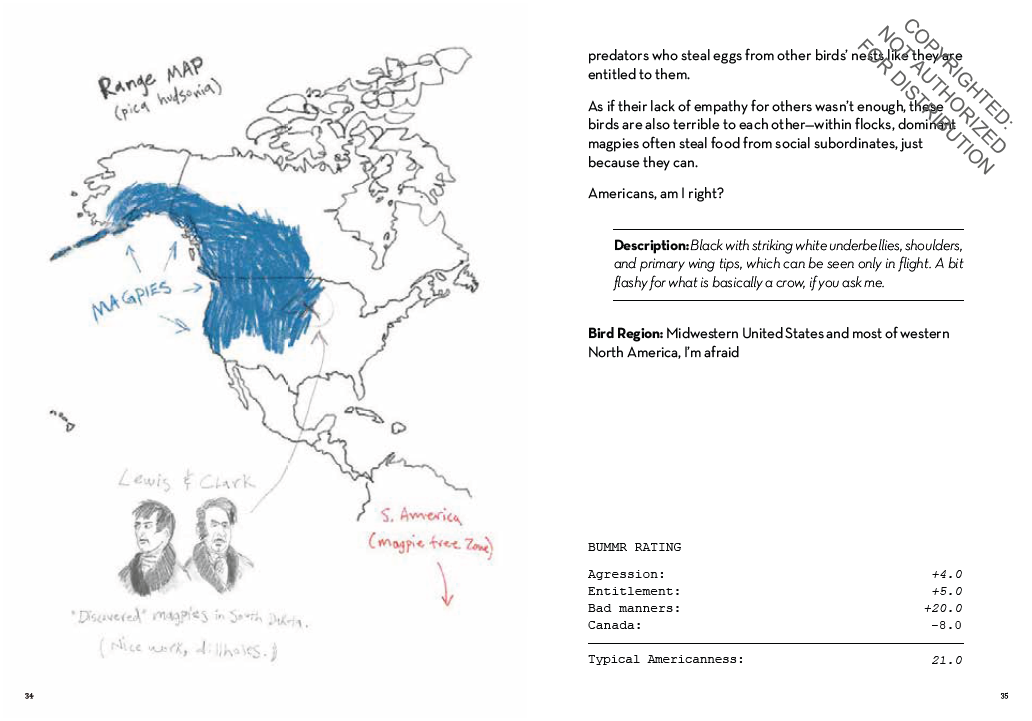 Range MAP
(pica hudsonia)
MAGPIES
Lewis & Clark
S. America
(magpie free zone)
"Discovered" magpies in South Dakota.
(Nice work, dillholes.)
34
predators who steal eggs from other birds' nests like they are
entitled to them.
As if their lack of empathy for others wasn't enough, these
birds are also terrible to each other—within flocks, dominant
magpies often steal food from social subordinates, just
because they can.
Americans, am I right?
Description: Black with striking white underbellies, shoulders,
and primary wing tips, which can be seen only in flight. A bit
flashy for what is basically a crow, if you ask me.
Bird Region: Midwestern United States and most of western
North America, I'm afraid
BUMMR RATING
Agression: +4.0
Entitlement: +5.0
Bad manners: +20.0
Canada: -8.0
Typical Americanness: 21.0
35
COPYRIGHTED:
NOT AUTHORIZED
FOR DISTRIBUTION